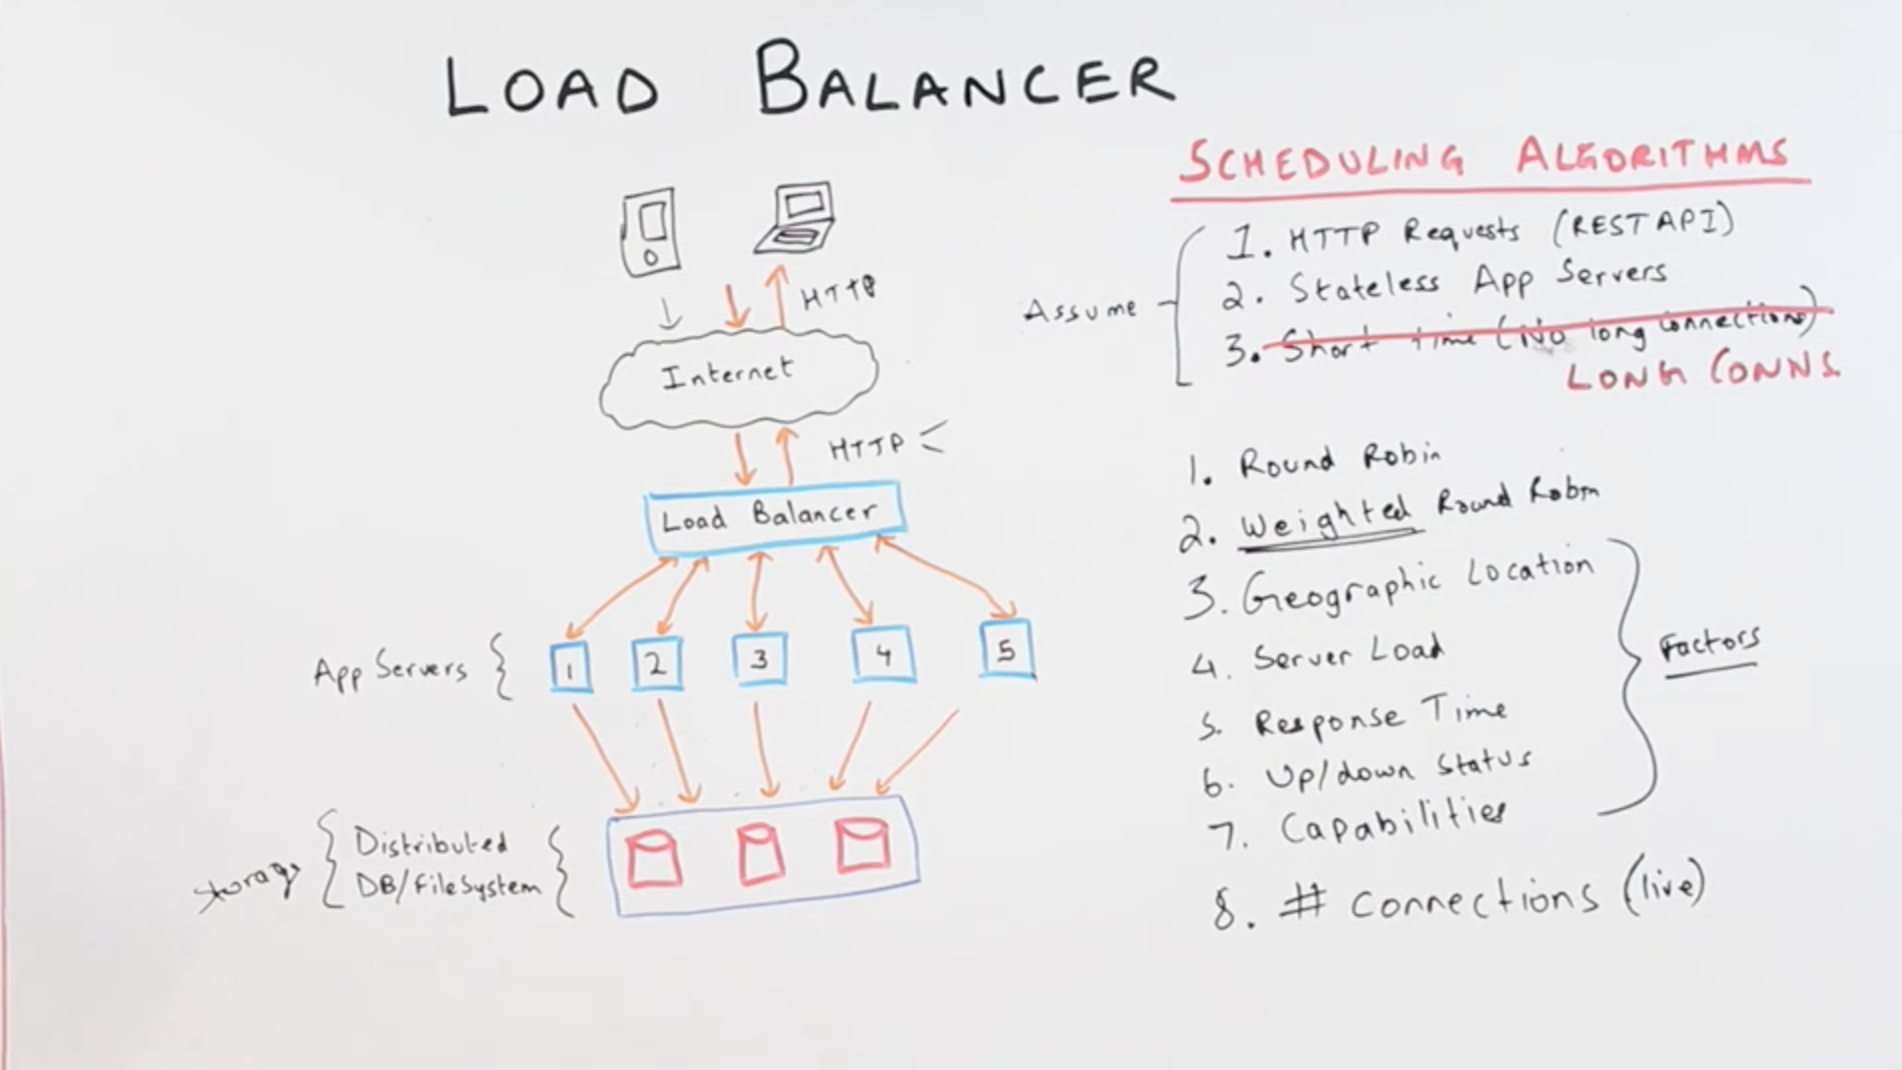 LOAD BALANCER
HTTP
Internet
HTTP
Load Balancer
App Servers
1
2
3
4
5
Storage
Distributed
DB/FileSystem
SCHEDULING ALGORITHMS
Assume
1. HTTP Requests (REST API)
2. Stateless App Servers
3. Short time (No long connections)
LONG CONNS.
1. Round Robin
2. Weighted Round Robin
3. Geographic Location
4. Server Load
5. Response Time
6. Up/down Status
7. Capabilities
Factors
8. # Connections (live)